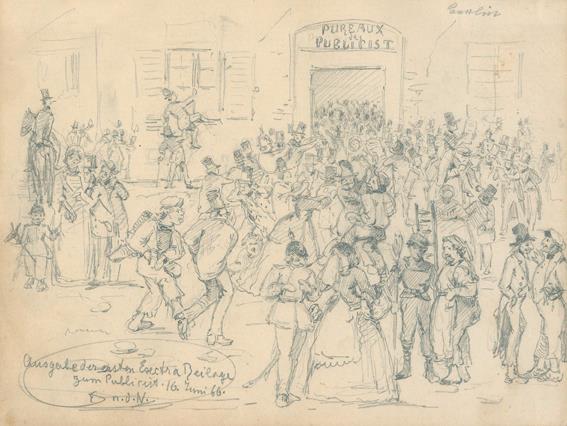 PUREAUX
de
PUBLICIST
Ausgabe der ersten Exectra Beilage
zum Publicist. 16. Juni 66.
n. d. N.